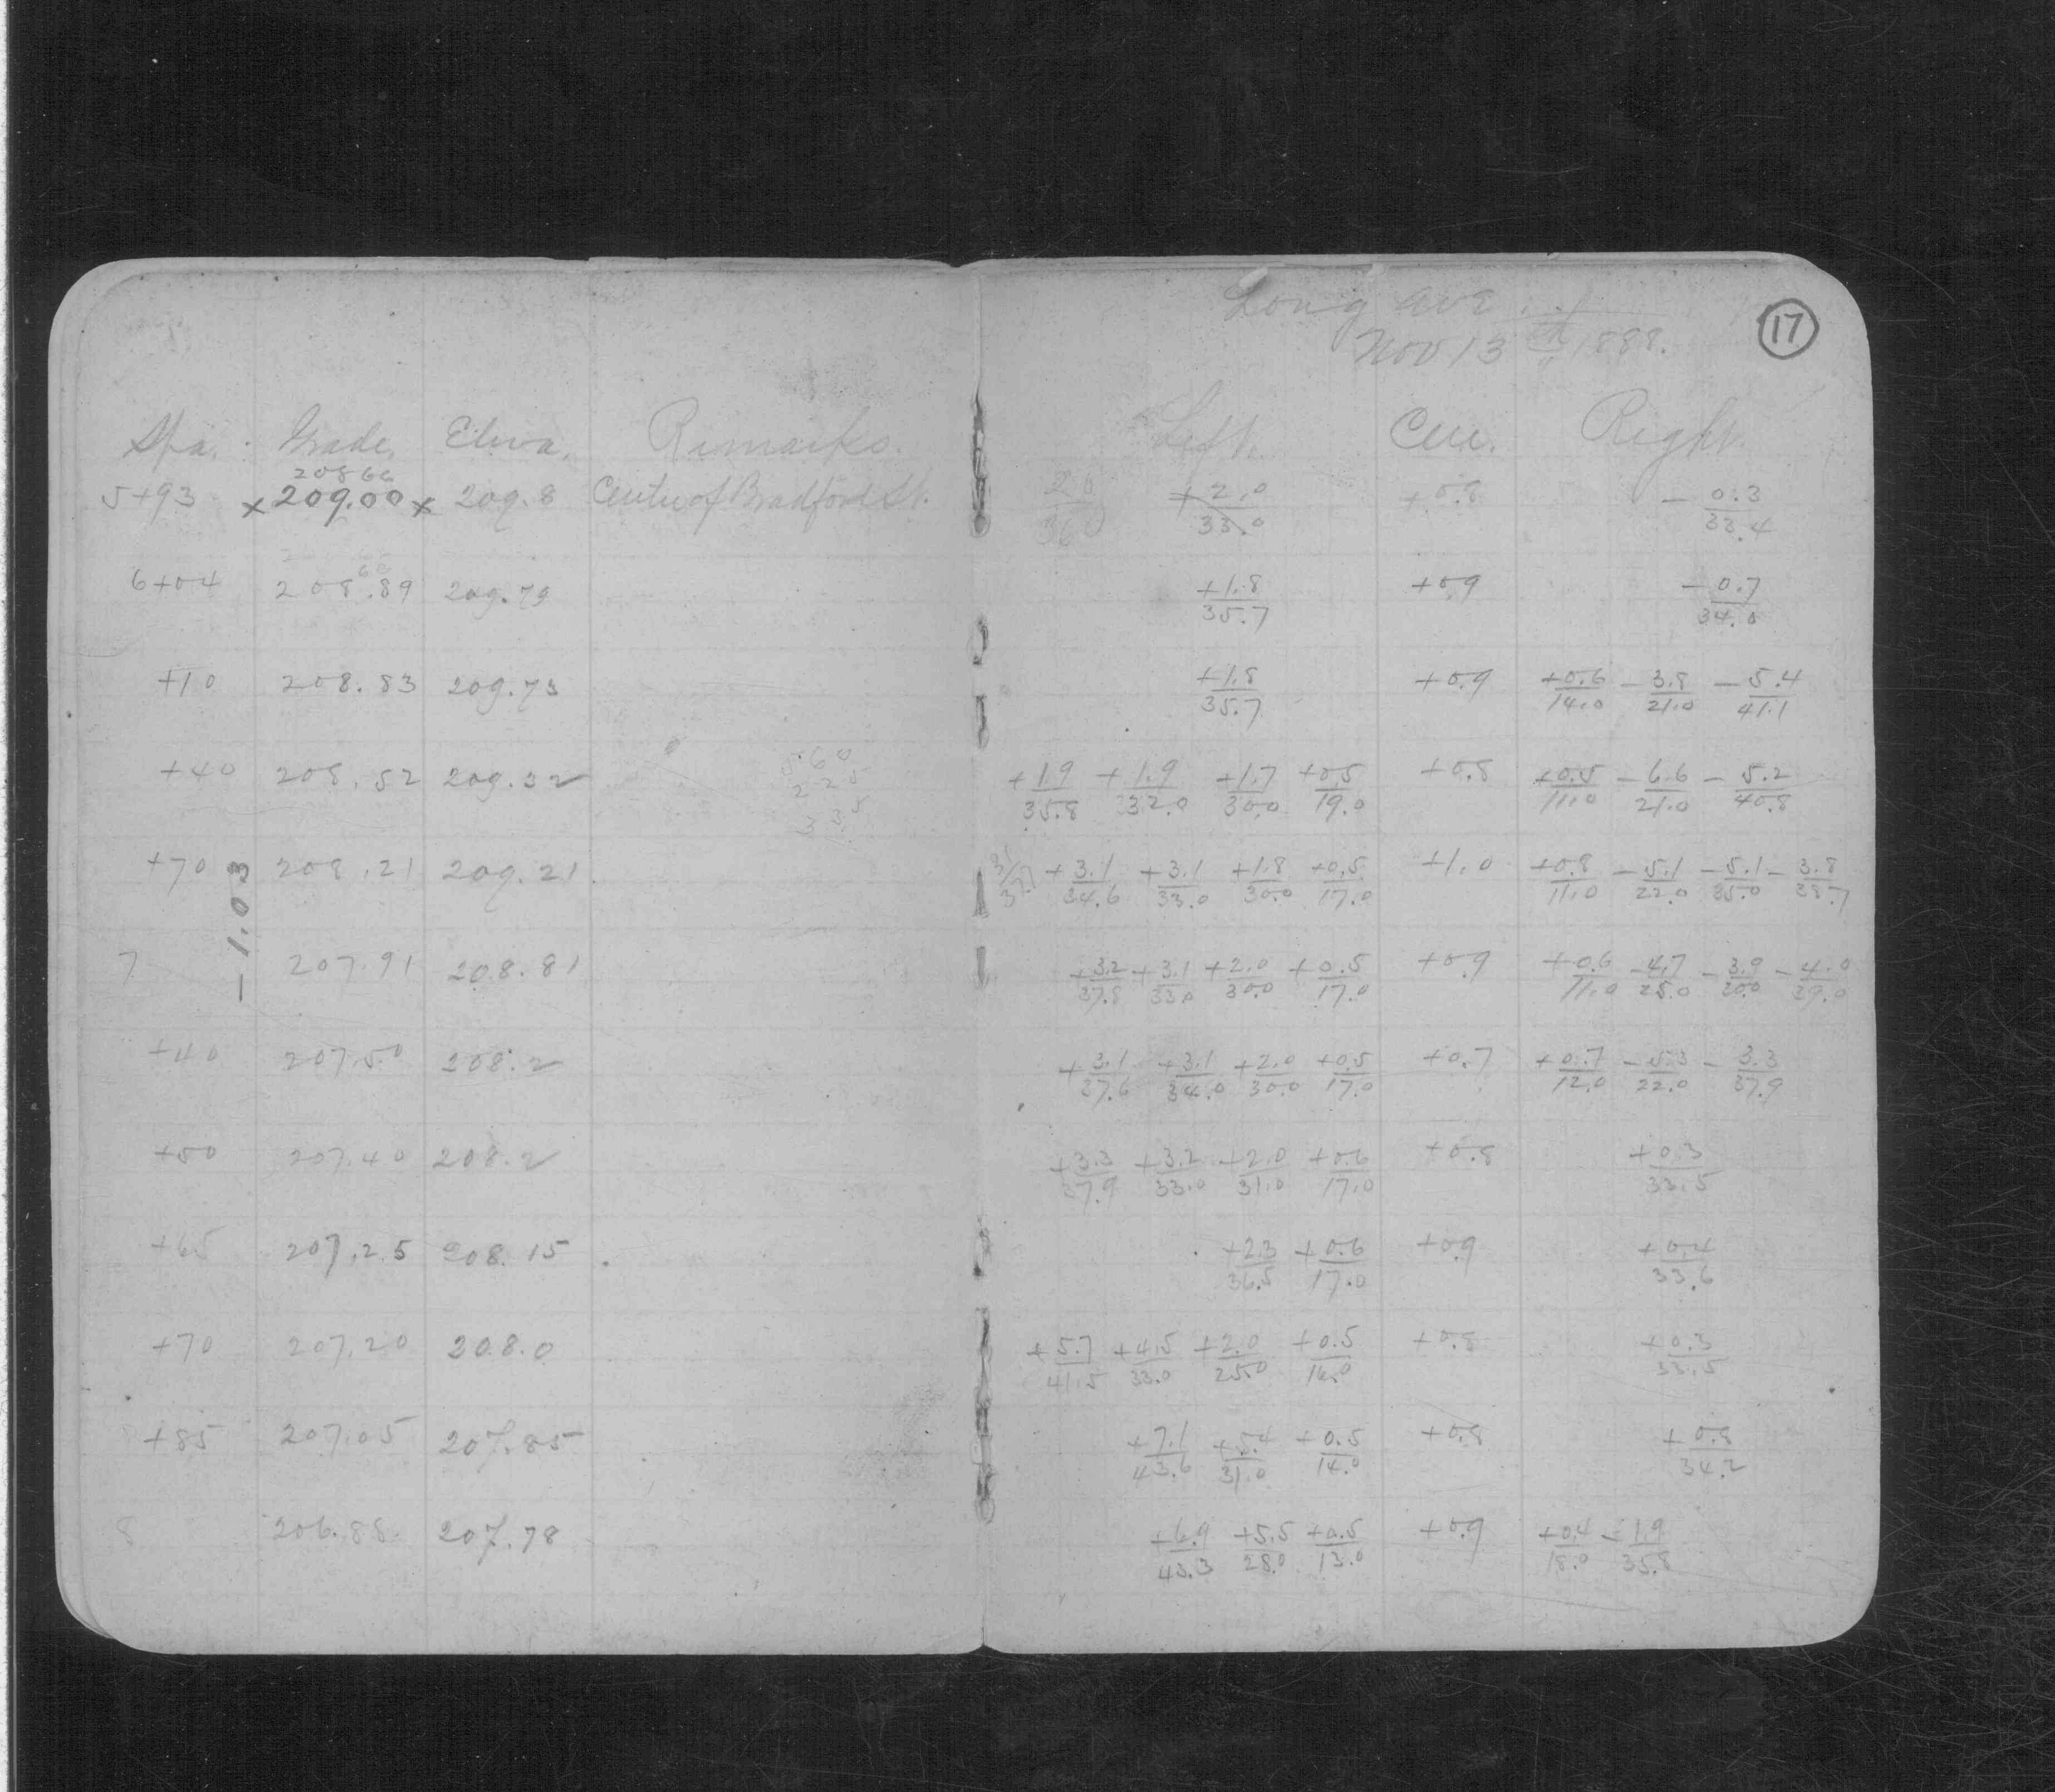 Long Ave.
Nov 13th 1888.
17
Sta. Grade, Eleva. Remarks. Left. Cen. Right.
20866
5+93 x 209.00 x 209.8 Centre of Bradford St. +2.0/33.0 +0.8 -0.3/33.4
6+04 208.89 209.79 +1.8/35.7 +0.9 -0.7/34.0
+10 208.83 209.73 +1.8/35.7 +0.9 +0.6/14.0 -3.8/21.0 -5.4/41.1
+40 208.52 209.32 +1.9/35.8 +1.9/32.0 +1.7/30.0 +0.5/19.0 +0.8 +0.5/11.0 -6.6/21.0 -5.2/40.8
+70 208.21 209.21 3.1/37.7 +3.1/34.6 +3.1/33.0 +1.8/30.0 +0.5/17.0 +1.0 +0.8/11.0 -5.1/22.0 -5.1/25.0 -3.8/38.7
-1.03
7 207.91 208.81 +3.2/37.8 +3.1/33.0 +2.0/30.0 +0.5/17.0 +0.9 +0.6/11.0 -4.7/25.0 -3.9/30.0 -4.0/39.0
+40 207.50 208.2 +3.1/37.6 +3.1/34.0 +2.0/30.0 +0.5/17.0 +0.7 +0.7/12.0 -5.3/22.0 -3.3/37.9
+50 207.40 208.2 +3.3/37.9 +3.2/33.0 +2.0/31.0 +0.6/17.0 +0.8 +0.3/33.5
+65 207.25 208.15 +2.3/36.5 +0.6/17.0 +0.9 +0.4/33.6
+70 207.20 208.0 +5.7/41.5 +4.5/33.0 +2.0/25.0 +0.5/16.0 +0.8 +0.3/33.5
+85 207.05 207.85 +7.1/43.6 +5.4/31.0 +0.5/14.0 +0.8 +0.8/34.2
8 206.88 207.78 +6.9/43.3 +5.5/28.0 +0.5/13.0 +0.9 +0.4/18.0 -1.9/35.8